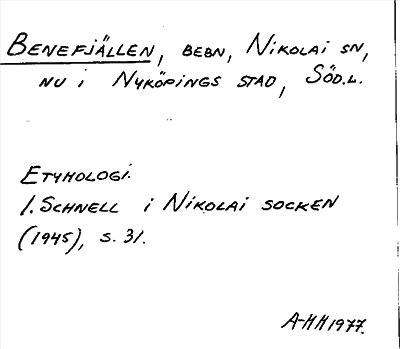 Benefjällen, bebn, Nikolai sn,
nu i Nyköpings stad, Söd.l.
Etymologi.
I. Schnell i Nikolai socken
(1945), s. 31.
A-HH 1977.